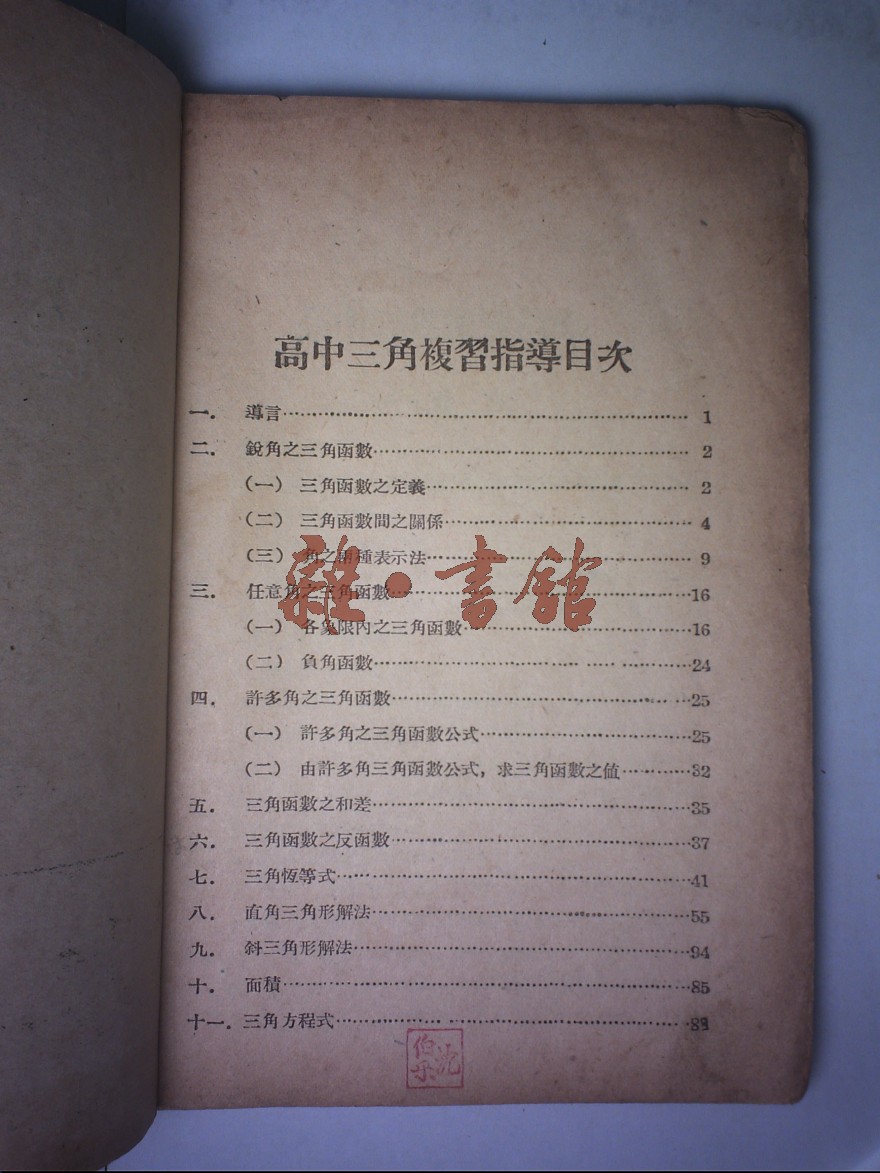 高中三角複習指導目次
一. 導言 1
二. 銳角之三角函數 2
(一) 三角函數之定義 2
(二) 三角函數間之關係 4
(三) 角之兩種表示法 9
三. 任意角之三角函數 16
(一) 各象限內之三角函數 16
(二) 負角函數 24
四. 許多角之三角函數 25
(一) 許多角之三角函數公式 25
(二) 由許多角三角函數公式, 求三角函數之値 32
五. 三角函數之和差 35
六. 三角函數之反函數 37
七. 三角恆等式 41
八. 直角三角形解法 55
九. 斜三角形解法 94
十. 面積 85
十一. 三角方程式
雜·書館